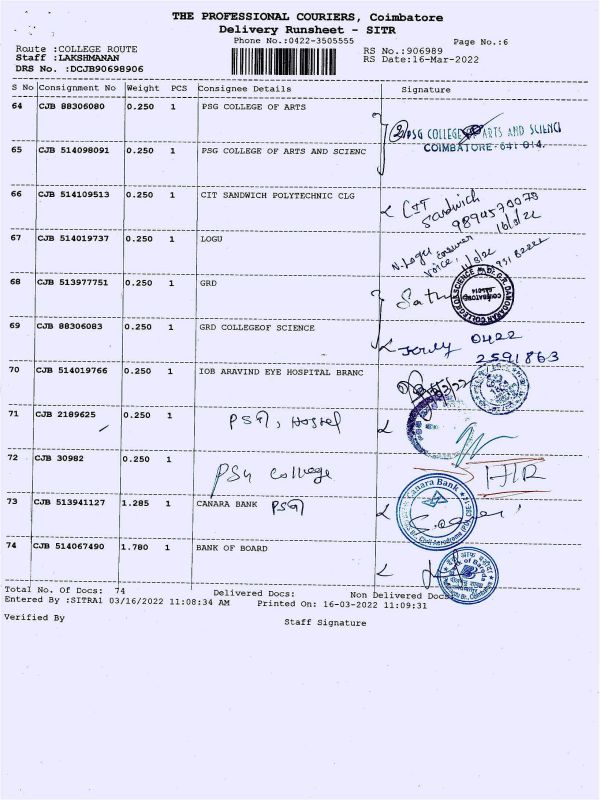 THE PROFESSIONAL COURIERS, Coimbatore
Delivery Runsheet - SITR
Phone No.:0422-3505555
Page No.:6
Route :COLLEGE ROUTE
RS No.:906989
Staff :LAKSHMANAN
RS Date:16-Mar-2022
DRS No. :DCJB90698906
S No Consignment No Weight PCS Consignee Details Signature
64 CJB 88306080 0.250 1 PSG COLLEGE OF ARTS
PSG COLLEGE OF ARTS AND SCIENC
COIMBATORE-641 014.
65 CJB 514098091 0.250 1 PSG COLLEGE OF ARTS AND SCIENC
66 CJB 514109513 0.250 1 CIT SANDWICH POLYTECHNIC CLG
CIT
Sandwich
67 CJB 514019737 0.250 1 LOGU
N. Logu
68 CJB 513977751 0.250 1 GRD
69 CJB 88306083 0.250 1 GRD COLLEGEOF SCIENCE
0422
2591863
70 CJB 514019766 0.250 1 IOB ARAVIND EYE HOSPITAL BRANC
71 CJB 2189625 0.250 1 PSG, Hostel
72 CJB 30982 0.250 1 PSG College
73 CJB 513941127 1.285 1 CANARA BANK PSG
Canara Bank
74 CJB 514067490 1.780 1 BANK OF BOARD
Bank of Baroda
Total No. Of Docs: 74 Delivered Docs: Non Delivered Docs
Entered By :SITRA1 03/16/2022 11:08:34 AM Printed On: 16-03-2022 11:09:31
Verified By
Staff Signature